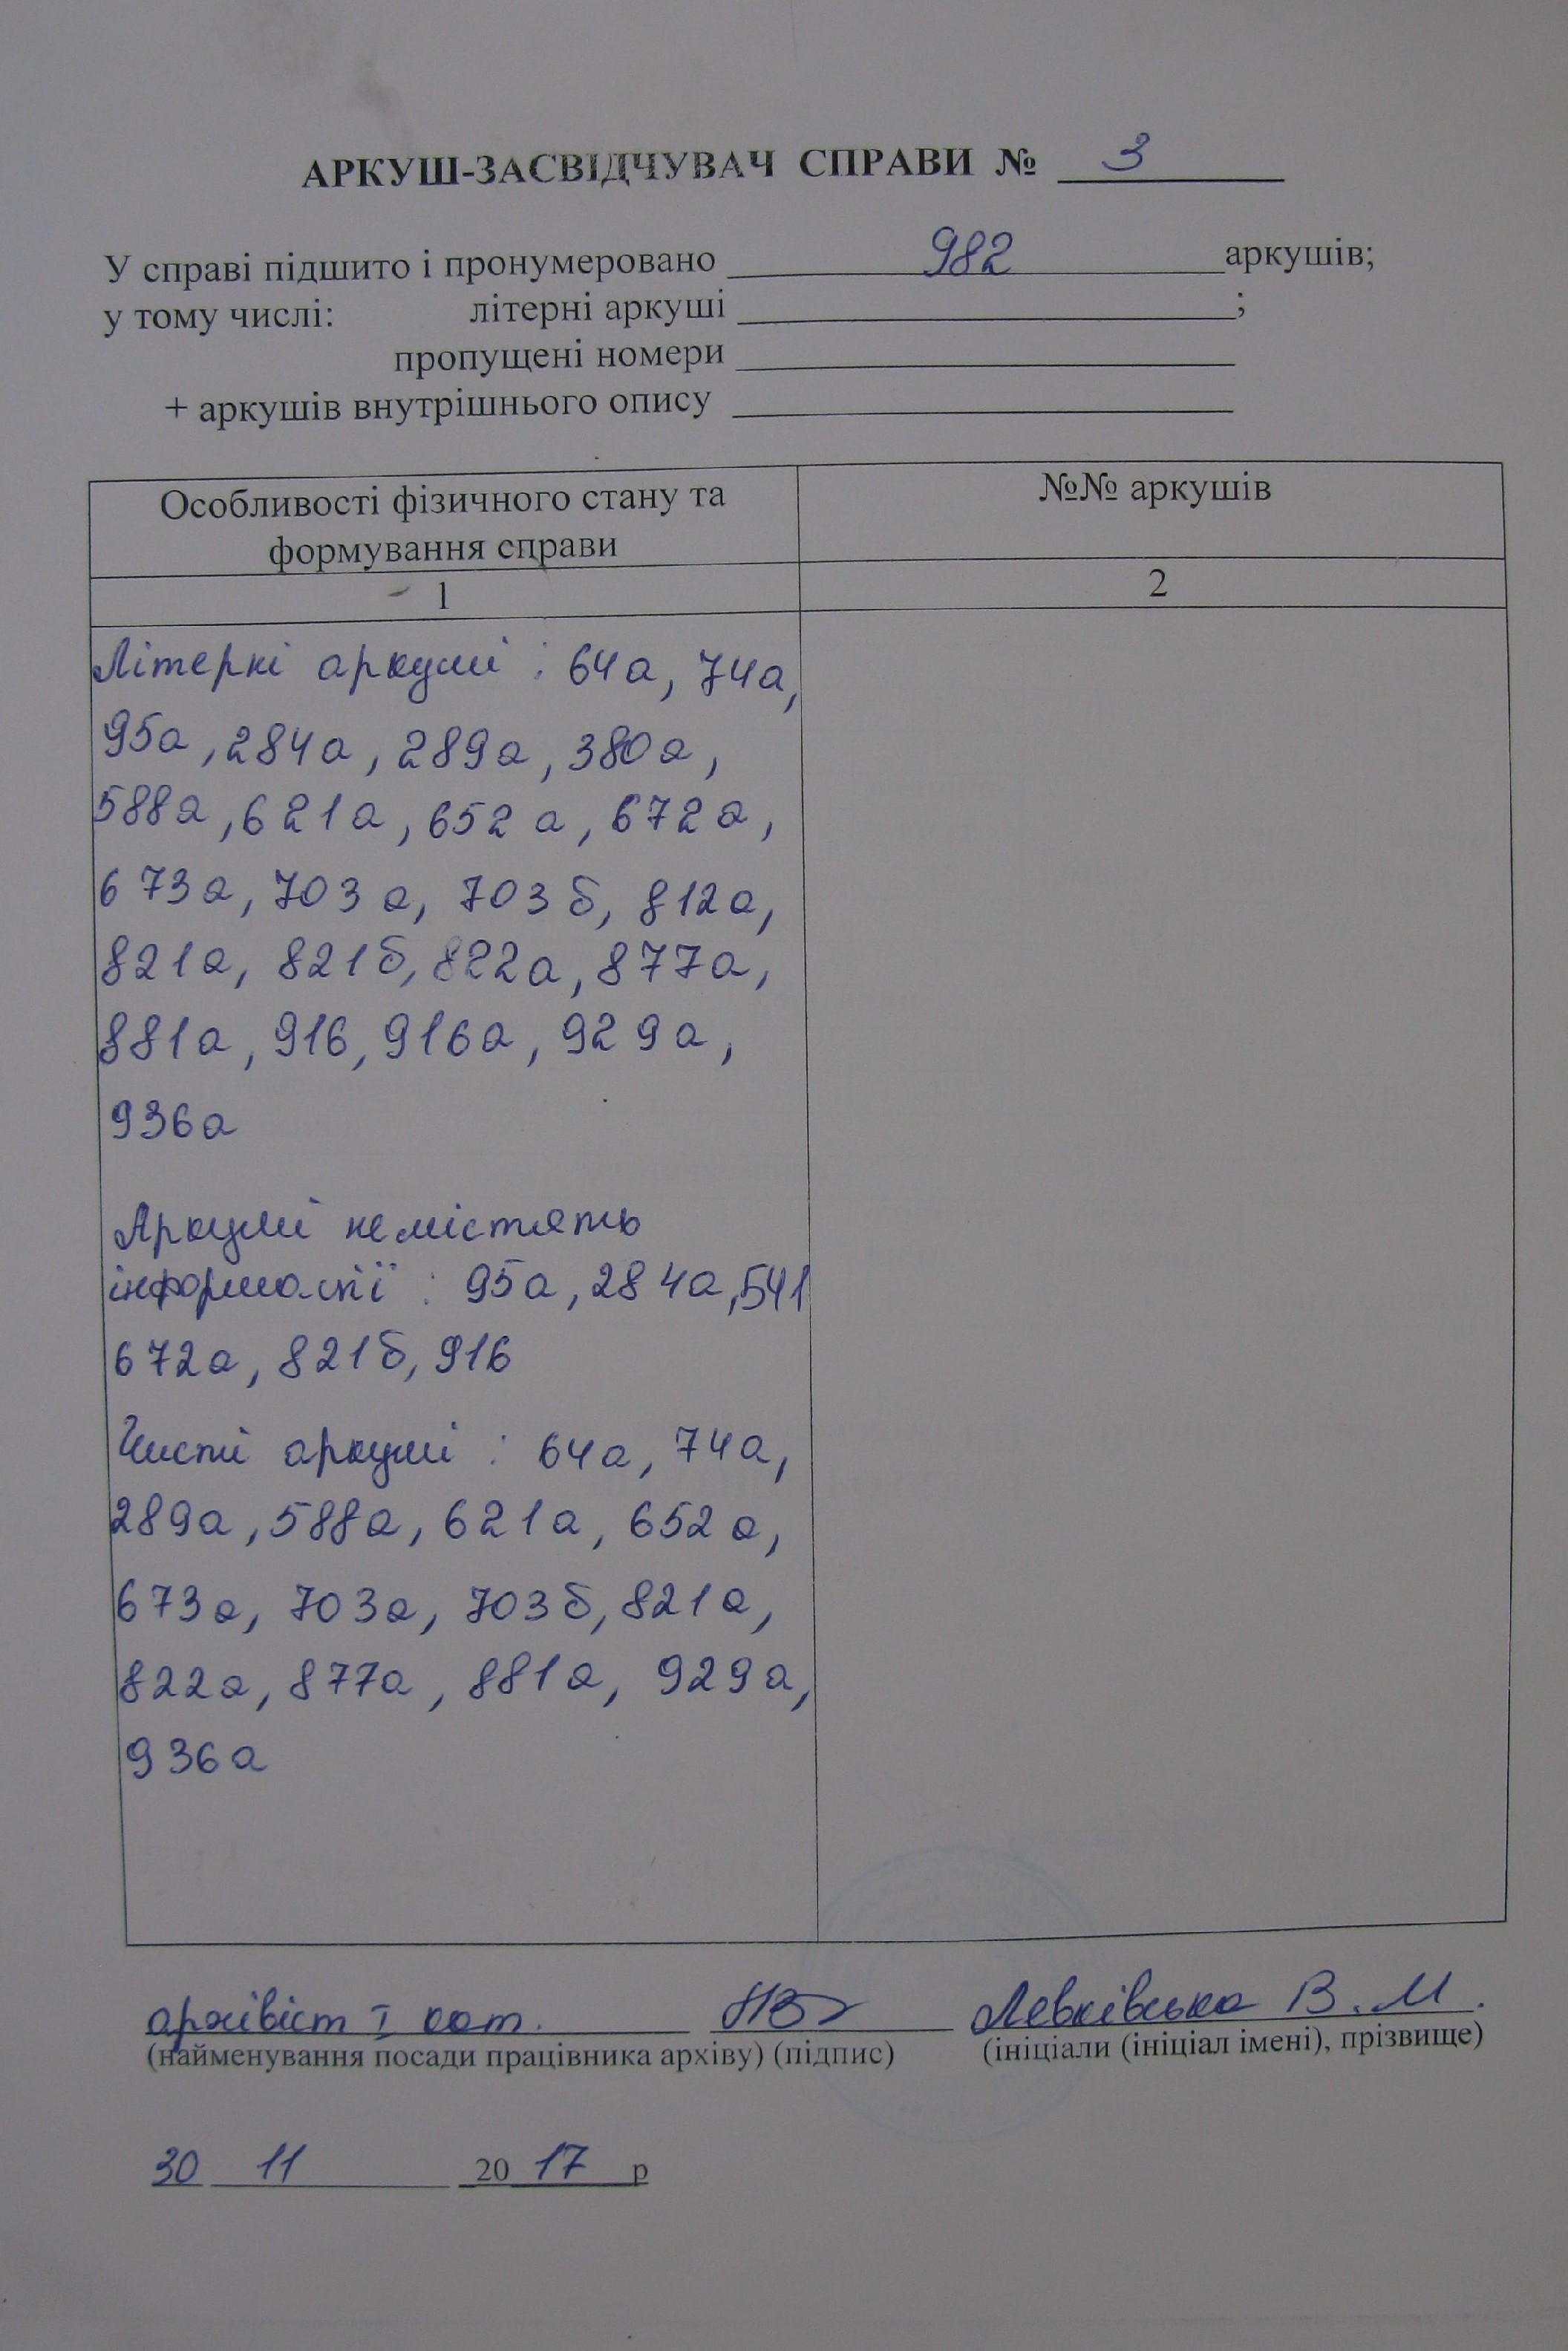 АРКУШ-ЗАСВІДЧУВАЧ СПРАВИ № 3
У справі підшито і пронумеровано 982 аркушів;
у тому числі: літерні аркуші ;
пропущені номери
+ аркушів внутрішнього опису
Особливості фізичного стану та
формування справи
№№ аркушів
1
2
Літерні аркуші : 64а, 74а,
95а, 284а, 289а, 380а,
588а, 621а, 652а, 672а,
673а, 703а, 703б, 812а,
821а, 821б, 822а, 877а,
881а, 916, 916а, 929а,
936а
Аркуші немістять
інформації : 95а, 284а, 541
672а, 821б, 916
Чисті аркуші : 64а, 74а,
289а, 588а, 621а, 652а,
673а, 703а, 703б, 821а,
822а, 877а, 881а, 929а,
936а
архівіст І кат. Левківська В. М.
(найменування посади працівника архіву) (підпис) (ініціали (ініціал імені), прізвище)
30 11 20 17 р